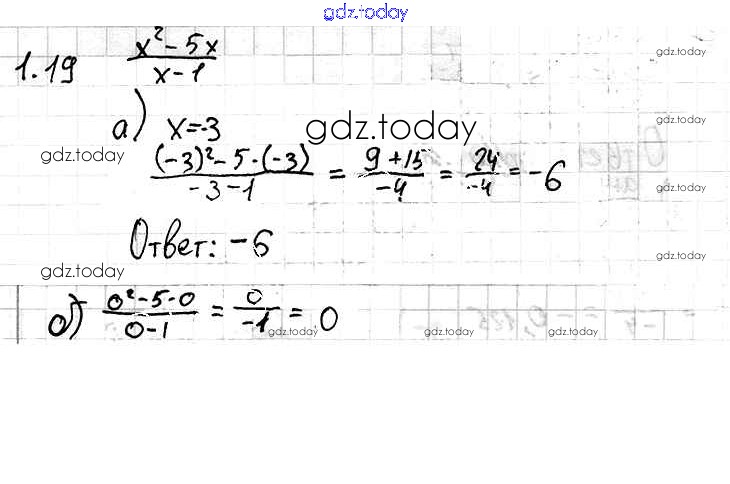 gdz.today
1.19 (x² - 5x)/(x - 1)
gdz.today
а) x = -3 gdz.today
gdz.today ((-3)² - 5·(-3))/(-3 - 1) = (9 + 15)/(-4) = 24/-4 = -6
gdz.today
Ответ: -6
gdz.today gdz.today
б) (0² - 5·0)/(0 - 1) = 0/-1 = 0
gdz.today gdz.today gdz.today